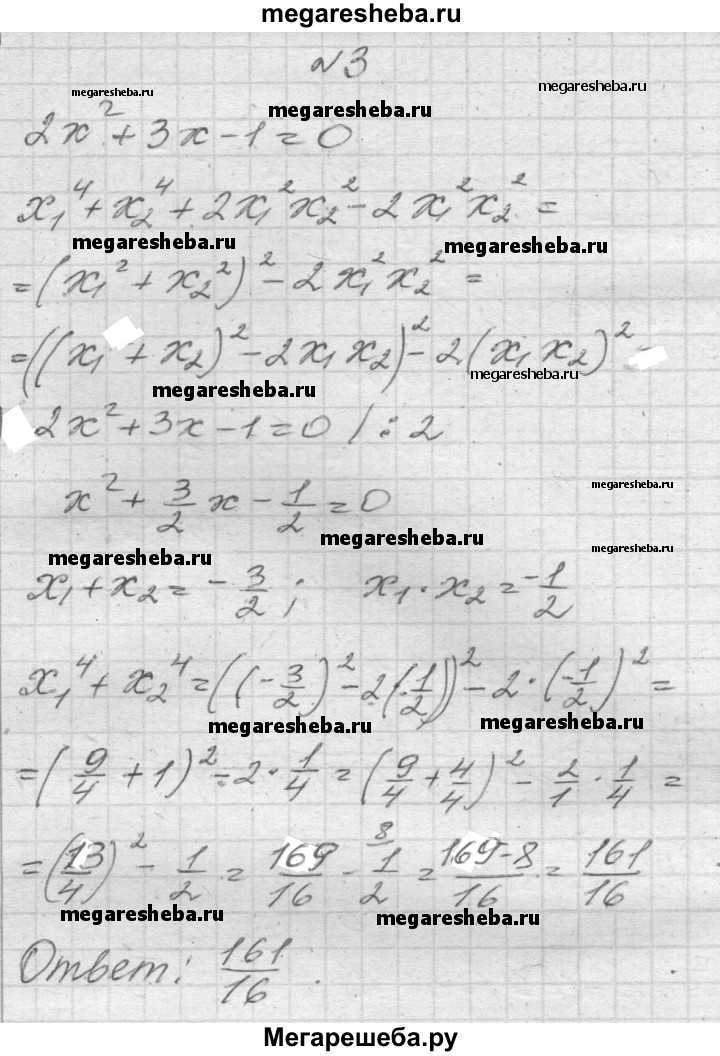 megaresheba.ru
№3
megaresheba.ru
megaresheba.ru
megaresheba.ru
2x² + 3x - 1 = 0
x₁⁴ + x₂⁴ + 2x₁²x₂² - 2x₁²x₂² =
megaresheba.ru
megaresheba.ru
= (x₁² + x₂²)² - 2x₁²x₂² =
= ((x₁ + x₂)² - 2x₁x₂)² - 2(x₁x₂)²
megaresheba.ru
megaresheba.ru
2x² + 3x - 1 = 0 / : 2
x² + 3/2 x - 1/2 = 0
megaresheba.ru
megaresheba.ru
megaresheba.ru
megaresheba.ru
x₁ + x₂ = - 3/2 ; x₁ · x₂ = -1/2
x₁⁴ + x₂⁴ = ((-3/2)² - 2(-1/2))² - 2 · (-1/2)² =
megaresheba.ru
megaresheba.ru
= (9/4 + 1)² - 2 · 1/4 = (9/4 + 4/4)² - 2/1 · 1/4 =
= (13/4)² - 1/2 = 169/16 - 8 1/2 = 169-8/16 = 161/16
megaresheba.ru
megaresheba.ru
Ответ: 161/16 .
Мегарешеба.ру